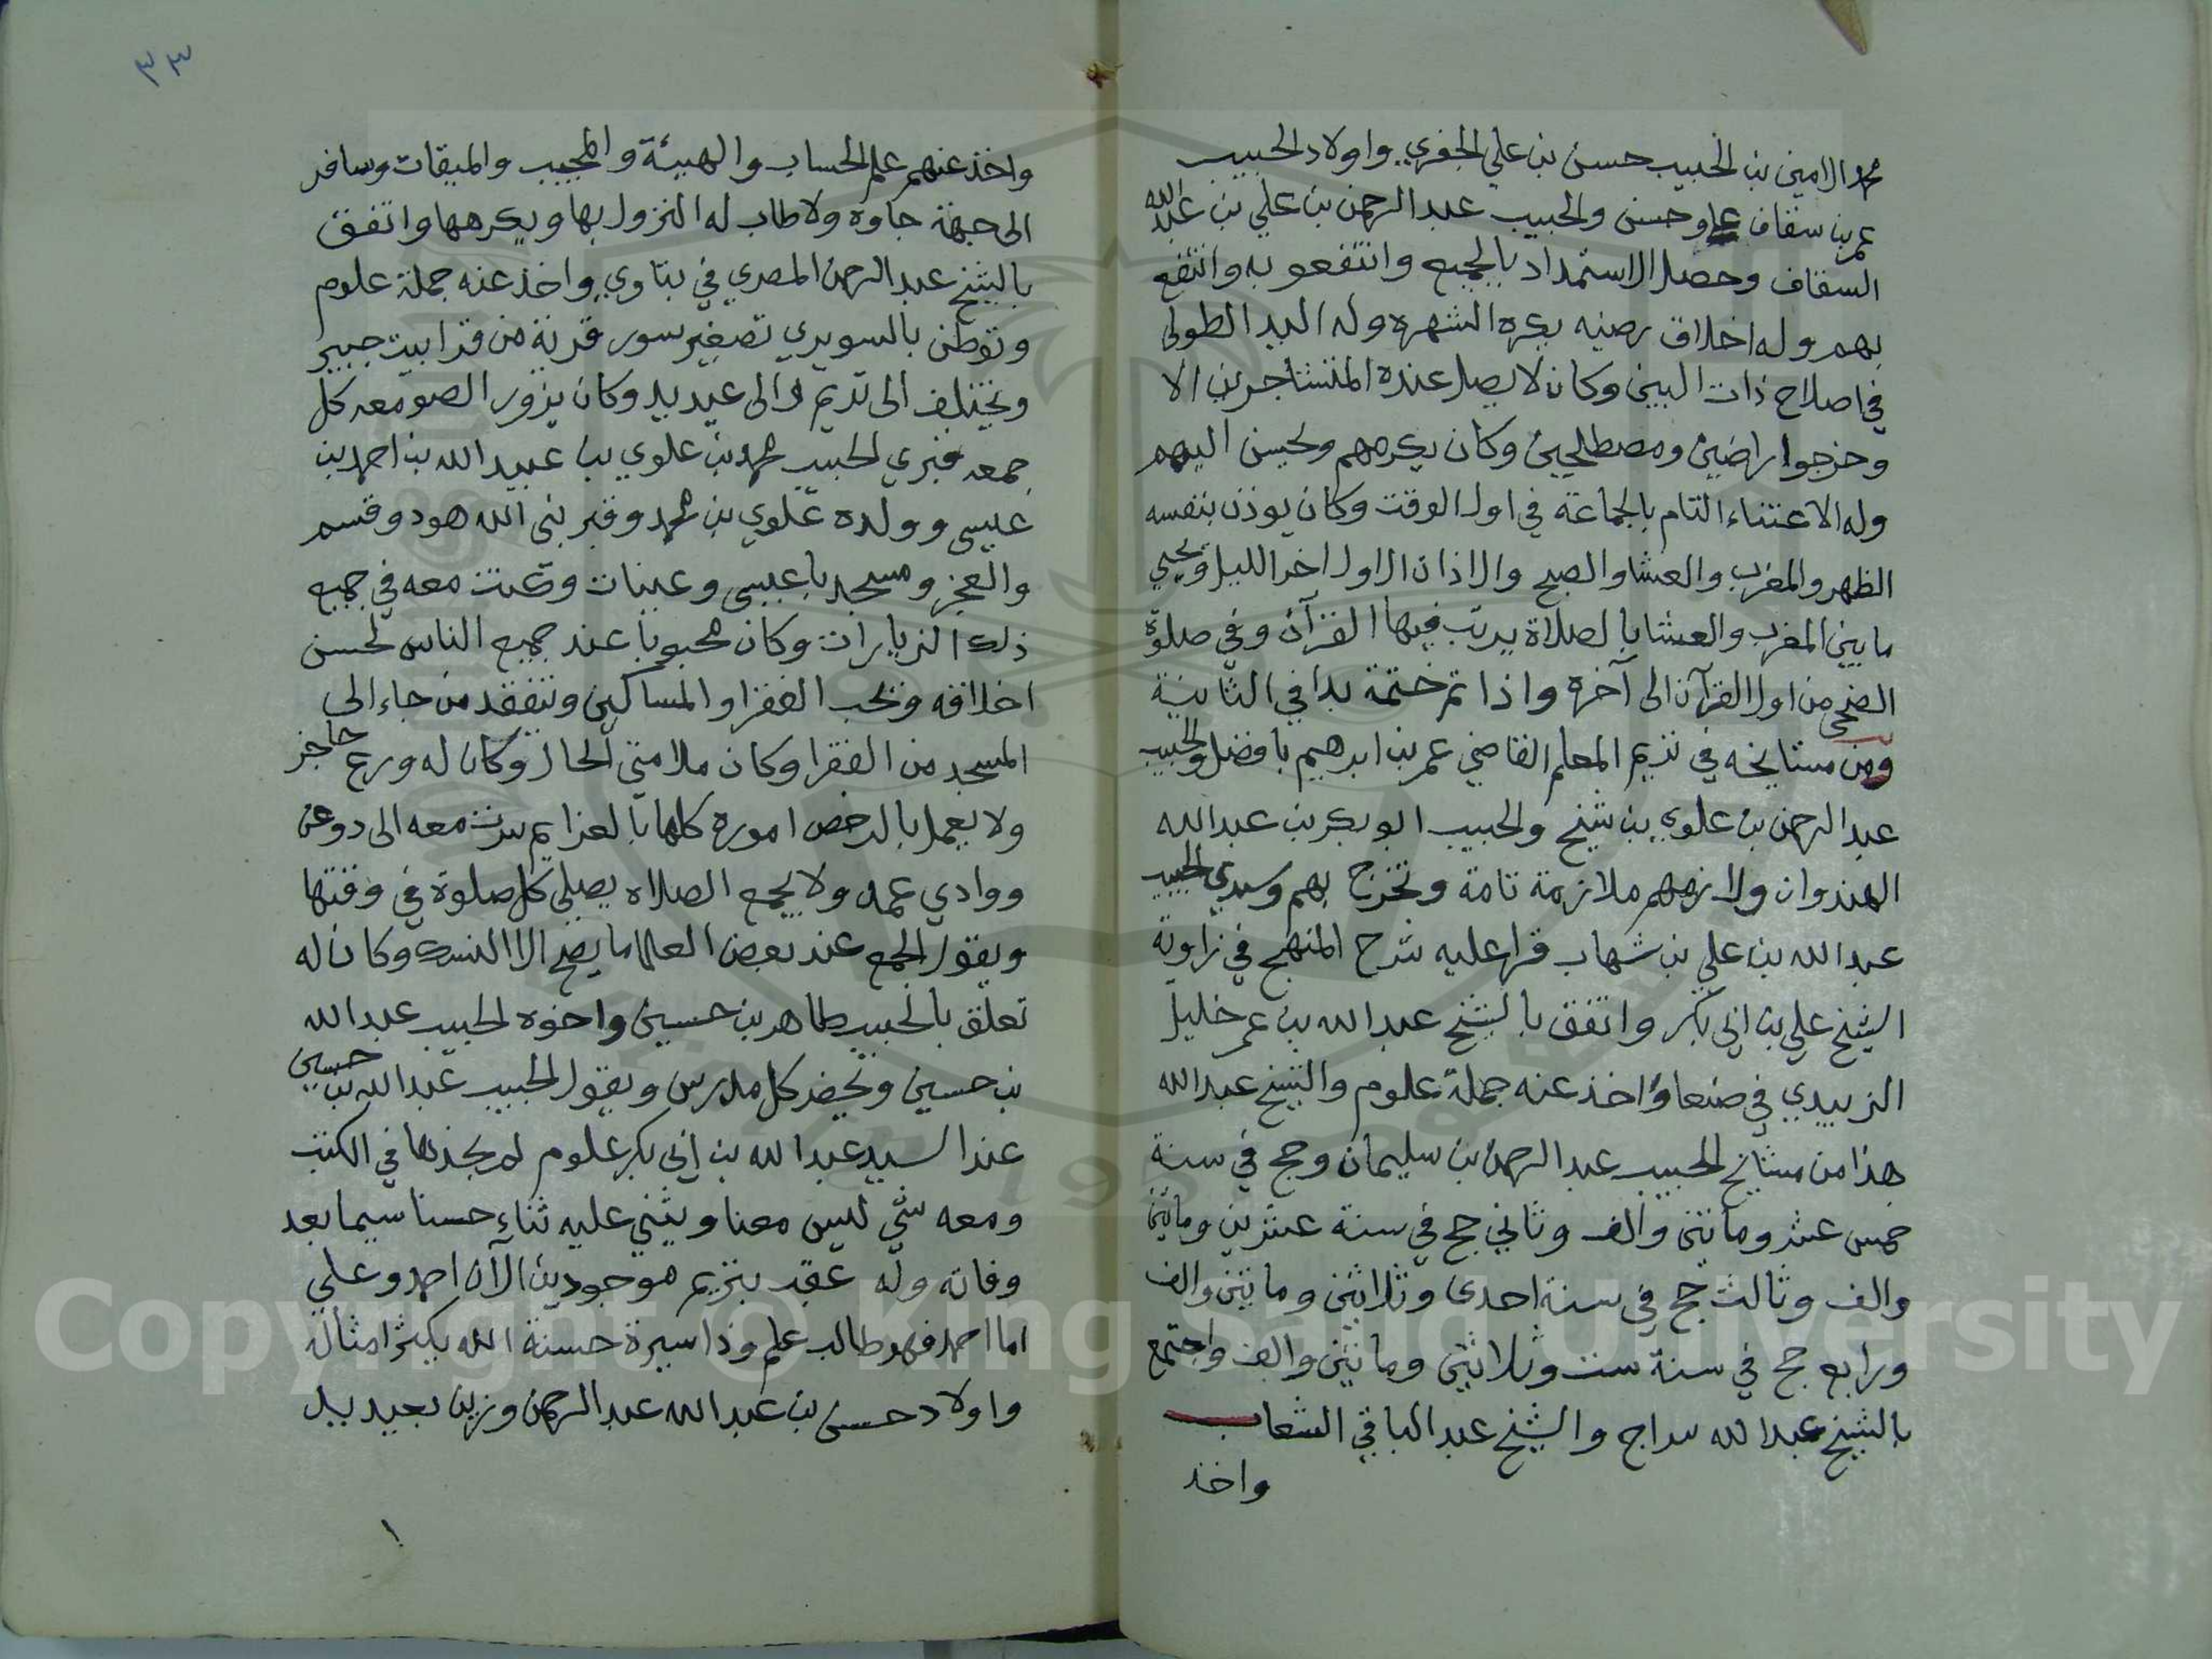 محمد الامين بن الحبيب حسن بن علي الجفري واولاد الحبيب
عمر بن سقاف علي وحسن والحبيب عبد الرحمن بن علي بن عبد الله
السقاف وحصل الاستمداد بالجميع وانتفعو به وانتفع
بهم وله اخلاق رضيه يكره الشهره وله اليد الطولى
في اصلاح ذات البين وكان لا يصل عنده المتشاجرين الا
وخرجوا راضين ومصطلحين وكان يكرمهم ويحسن اليهم
وله الاعتناء التام بالجماعة في اول الوقت وكان يوذن بنفسه
الظهر والمغرب والعشا والصبح والاذان الاول اخر الليل ويحيي
ما بين المغرب والعشا بالصلاة يرتب فيها القرآن وفي صلوة
الضحى من اول القرآن الى آخره واذا تم ختمة بدا في الثانية
ومن مشايخه في تريم المعلم القاضي عمر بن ابرهيم بافضل والحبيب
عبد الرحمن بن علوي بن شيخ والحبيب ابو بكر بن عبد الله
الهندوان ولازمهم ملازمة تامة وتخرج بهم وسيدي الحبيب
عبد الله بن علي بن شهاب قرا عليه شرح المنهج في زاوية
الشيخ علي بن ابي بكر واتفق بالشيخ عبد الله بن عمر خليل
الزبيدي في صنعا واخذ عنه جملة علوم والشيخ عبد الله
هذا من مشايخ الحبيب عبد الرحمن بن سليمان وحج في سنة
خمس عشر ومائتين والف وثاني حج في سنة عشرين ومائتين
والف وثالث حج في سنة احدى وثلاثين ومائتين والف
ورابع حج في سنة ست وثلاثين ومائتين والف واجتمع
بالشيخ عبد الله سراج والشيخ عبد الباقي الشعاب
واخذ
٣٣
واخذ عنهم علم الحساب والهيئة والمجيب والميقات وسافر
الى جهة جاوه ولا طاب له النزول بها ويكرهها واتفق
بالشيخ عبد الرحمن المصري في بتاوي واخذ عنه جملة علوم
وتوطن بالسويري تصغير سور قرية من قرا بيت جبير
ويختلف الى تريم والى عيديد وكان يزور الصومعه كل
جمعه قبري الحبيب محمد بن علوي بن عبيد الله بن احمد بن
عيسى وولده علوي بن محمد وقبر نبي الله هود وقسم
والعجز ومسجد باعيسى وعينات وكنت معه في جميع
ذلك الزيارات وكان محبوبا عند جميع الناس لحسن
اخلاقه ويحب الفقرا والمساكين ويتفقد من جاء الى
المسجد من الفقرا وكان ملامتي الحال وكان له ورع حاجز
ولا يعمل بالرخص اموره كلها بالعزايم سرت معه الى دوعن
ووادي عمد ولا يجمع الصلاه يصلي كل صلوة في وقتها
ويقول الجمع عند بعض العلما ما يصح الا النسك وكان له
تعلق بالحبيب طاهر بن حسين واخوه الحبيب عبد الله
بن حسين ويحضر كل مدرس ويقول الحبيب عبد الله بن حسين
عند السيد عبد الله بن ابي بكر علوم لم يجدها في الكتب
ومعه شي ليس معنا ويثني عليه ثناء حسنا سيما بعد
وفاته وله عقب بتريم موجودين الآن احمد وعلي
اما احمد فهو طالب علم وذا سيرة حسنة الله يكثر امثاله
واولاد حسن بن عبد الله عبد الرحمن وزين بعيديد
١
Copyright © King Saud University